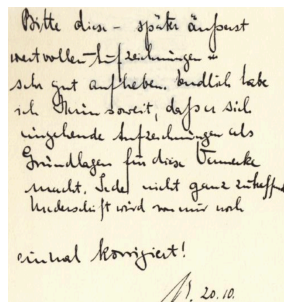 Bitte diese - später äusserst
wertvollen Aufzeichnungen -
sehr gut aufheben. Endlich habe
ich soweit, daß er sich
eingehende Aufzeichnungen als
Grundlagen für diese Vermerke
macht. Jede nicht ganz zutreffende
Niederschrift wird von mir noch
einmal korrigiert!
20.10.